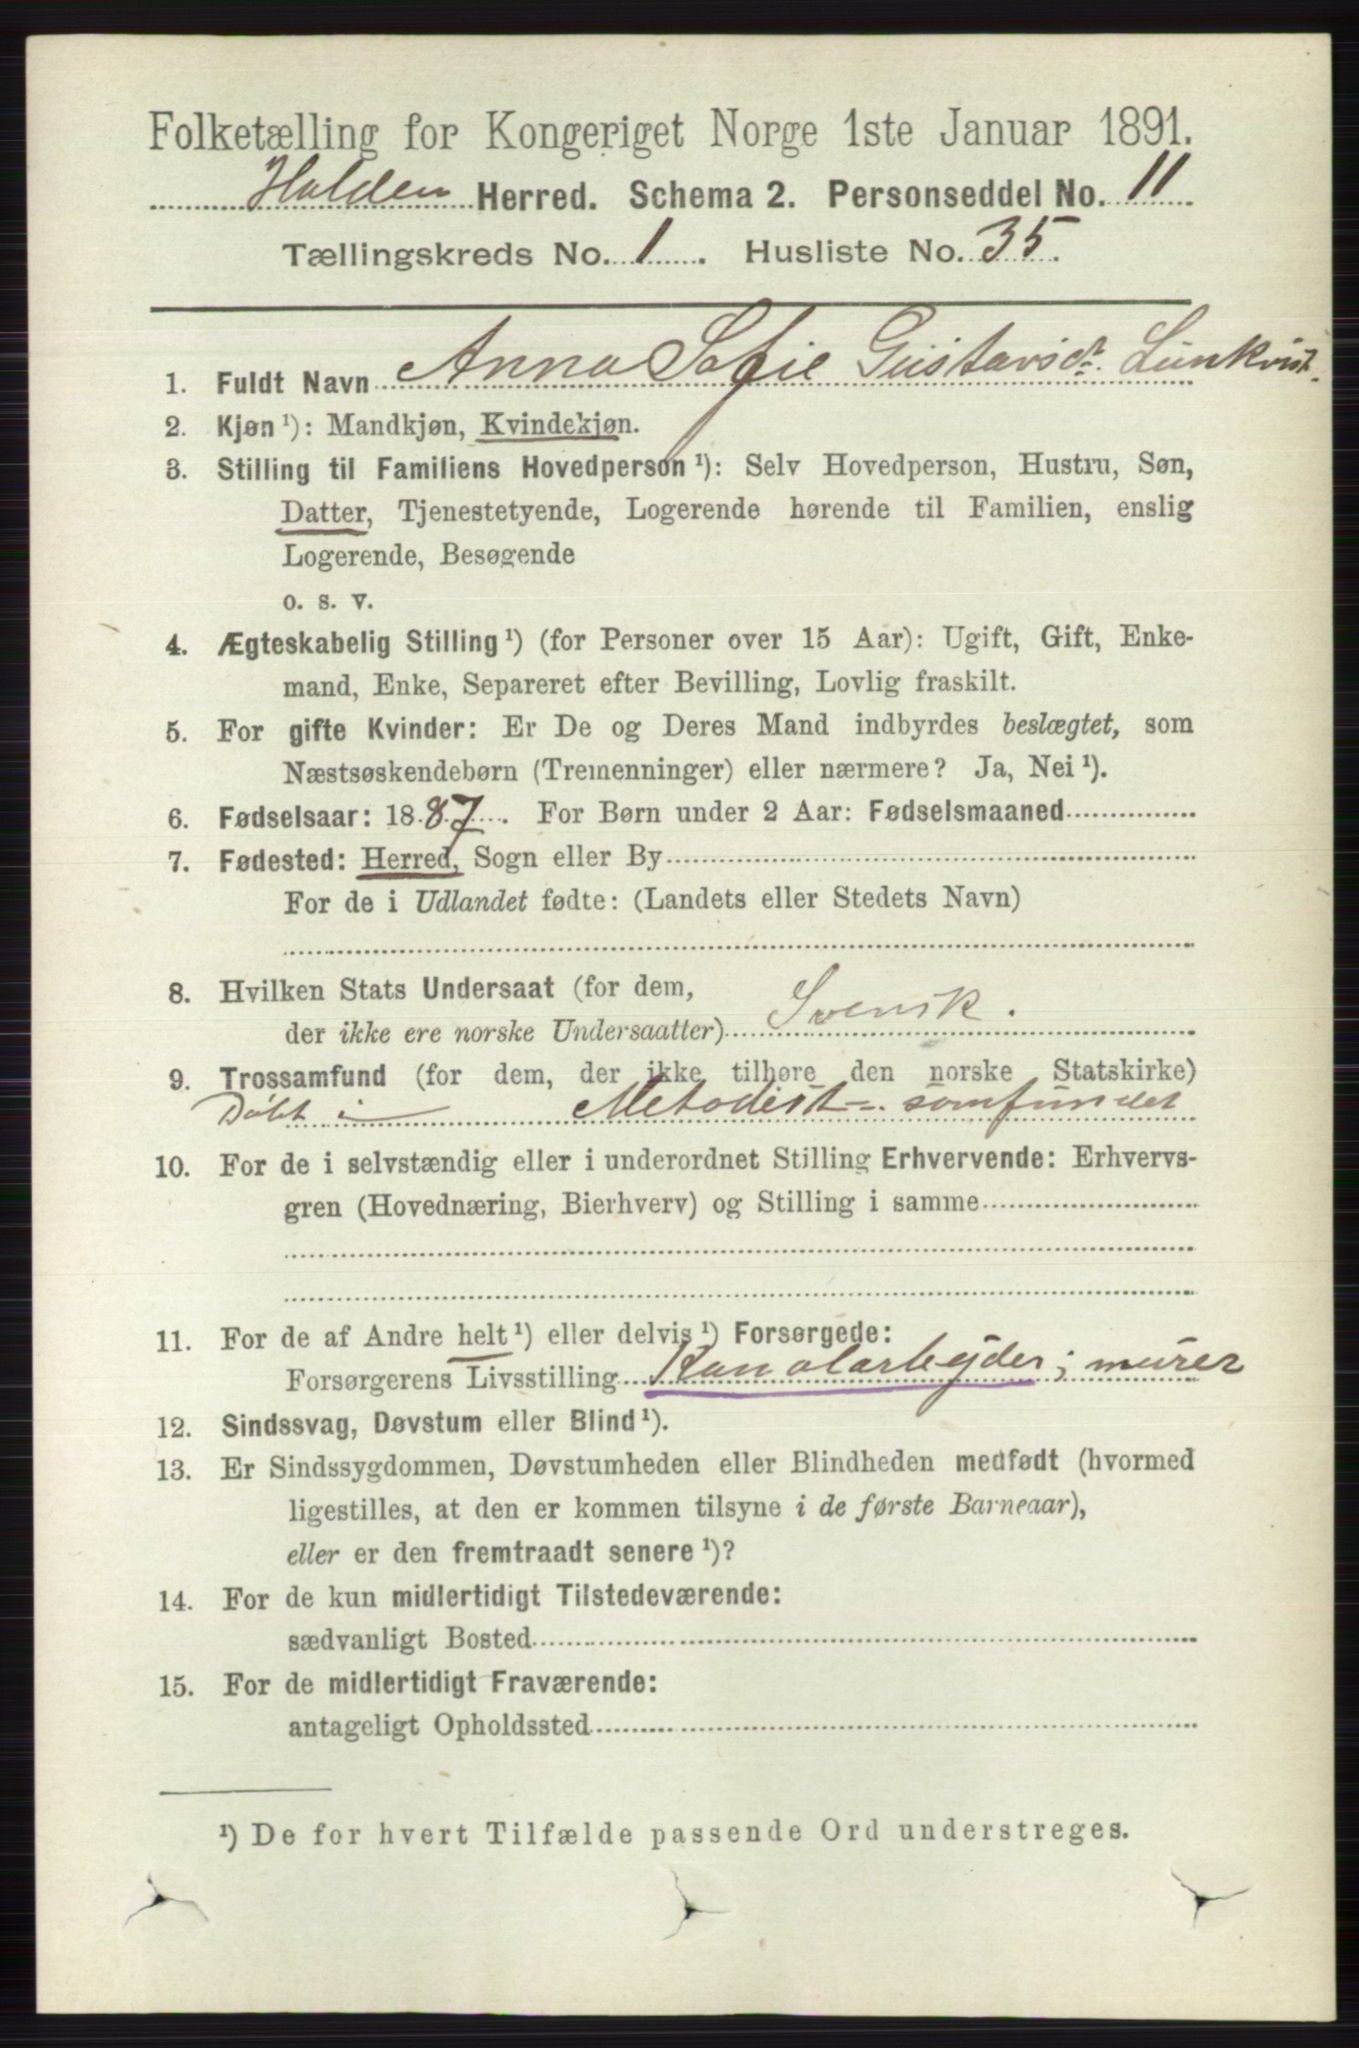 Folketælling for Kongeriget Norge 1ste Januar 1891.
Holden Herred. Schema 2. Personseddel No. 11
Tællingskreds No. 1. Husliste No. 35.
1. Fuldt Navn Anna Sofie Gustavsdt. Lunkvist.
2. Kjøn ¹): Mandkjøn, Kvindekjøn.
3. Stilling til Familiens Hovedperson ¹): Selv Hovedperson, Hustru, Søn,
Datter, Tjenestetyende, Logerende hørende til Familien, enslig
Logerende, Besøgende
o. s. v.
4. Ægteskabelig Stilling ¹) (for Personer over 15 Aar): Ugift, Gift, Enke-
mand, Enke, Separeret efter Bevilling, Lovlig fraskilt.
5. For gifte Kvinder: Er De og Deres Mand indbyrdes beslægtet, som
Næstsøskendebørn (Tremenninger) eller nærmere? Ja, Nei ¹).
6. Fødselsaar: 1887. For Børn under 2 Aar: Fødselsmaaned
7. Fødested: Herred, Sogn eller By
For de i Udlandet fødte: (Landets eller Stedets Navn)
8. Hvilken Stats Undersaat (for dem,
der ikke ere norske Undersaatter) Svensk.
9. Trossamfund (for dem, der ikke tilhøre den norske Statskirke)
Døbt i Metodist-samfundet
10. For de i selvstændig eller i underordnet Stilling Erhvervende: Erhvervs-
gren (Hovednæring, Bierhverv) og Stilling i samme
11. For de af Andre helt ¹) eller delvis ¹) Forsørgede:
Forsørgerens Livsstilling Kanalarbejder; murer
12. Sindssvag, Døvstum eller Blind ¹).
13. Er Sindssygdommen, Døvstumheden eller Blindheden medfødt (hvormed
ligestilles, at den er kommen tilsyne i de første Barneaar),
eller er den fremtraadt senere ¹)?
14. For de kun midlertidigt Tilstedeværende:
sædvanligt Bosted
15. For de midlertidigt Fraværende:
antageligt Opholdssted
¹) De for hvert Tilfælde passende Ord understreges.